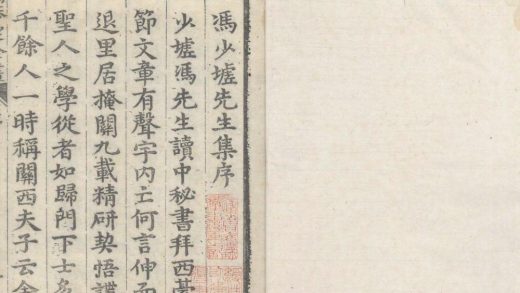 馮少墟先生集序
少墟馮先生讀中秘書拜西臺
節文章有聲宇内亡何言伸而
退里居掩關九載精研契悟
聖人之學從者如歸門下士
千餘人一時稱關西夫子云余